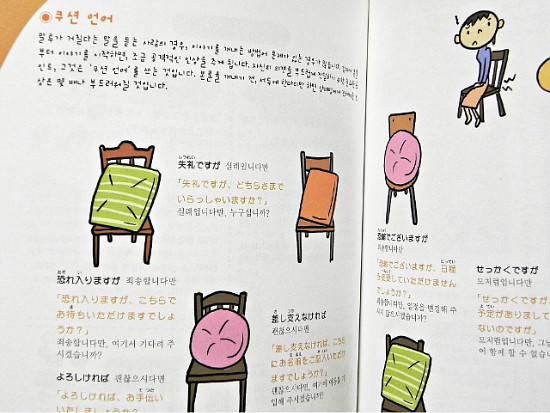 쿠션 언어
말투가 거칠다는 말을 듣는 사람의 경우, 이야기를 꺼내는 방법에 문제가 있는 경우가 많습니다.
부터 이야기를 시작하면, 조금 공격적인 인상을 주게 됩니다. 자신의 의견을 부드럽게
인트, 그것은 '쿠션 언어'를 쓰는 것입니다. 본론을 꺼내기 전, 서두에 한마디만 하면
상은 몇 배나 부드러워질 것입니다.
しつれい
失礼ですが 실례입니다만
「失礼ですが、どちらさまで
いらっしゃいますか？」
실례입니다만, 누구십니까?
おそ い
恐れ入りますが 죄송합니다만
「恐れ入りますが、こちらで
お待ちいただけますでしょ
うか？」
죄송합니다만, 여기서 기다려 주
시겠습니까?
よろしければ 괜찮으시다면
「よろしければ、お手伝い
いたしましょうか？」
さ つか
差し支えなければ
괜찮으시다면
「差し支えなければ、こちら
にお名前をご記入いただけ
ますでしょうか？」
괜찮으시다면, 여기에 이름을 기
입해 주시겠습니까?
恐縮でございますが
죄송합니다만
「恐縮でございますが、日程
を変更していただけません
でしょうか？」
죄송합니다만, 일정을 변경해 주
시지 않으시겠습니까?
せっかくですが
모처럼입니다만
「せっかくですが
予定がありまして
ないのですが」
모처럼입니다만, 그날
이 함께 할 수 없습니